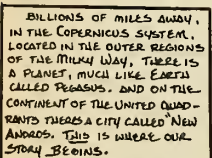 BILLIONS OF MILES AWAY,
IN THE COPERNICUS SYSTEM,
LOCATED IN THE OUTER REGIONS
OF THE MILKY WAY, THERE IS
A PLANET, MUCH LIKE EARTH
CALLED PEGASUS. AND ON THE
CONTINENT OF THE UNITED QUAD-
RANTS THERES A CITY CALLED "NEW
ANDROS. THIS IS WHERE OUR
STORY BEGINS.